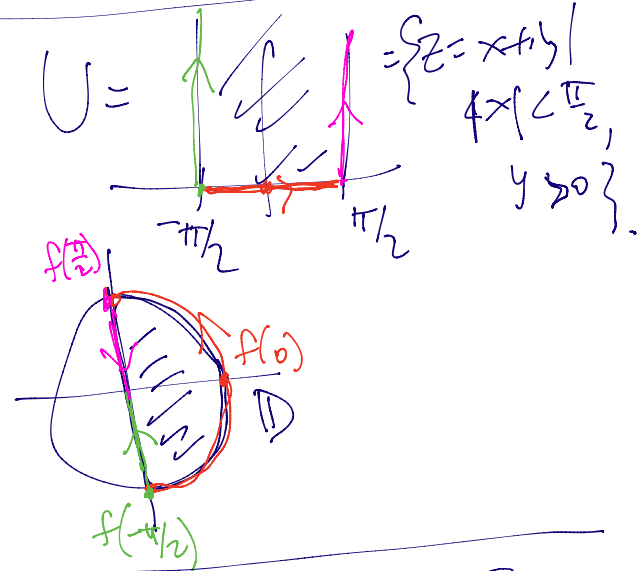 U = = {z = x + iy |
|x| < π/2,
y > 0}.
-π/2 π/2
f(π/2)
f(0)
D
f(-π/2)